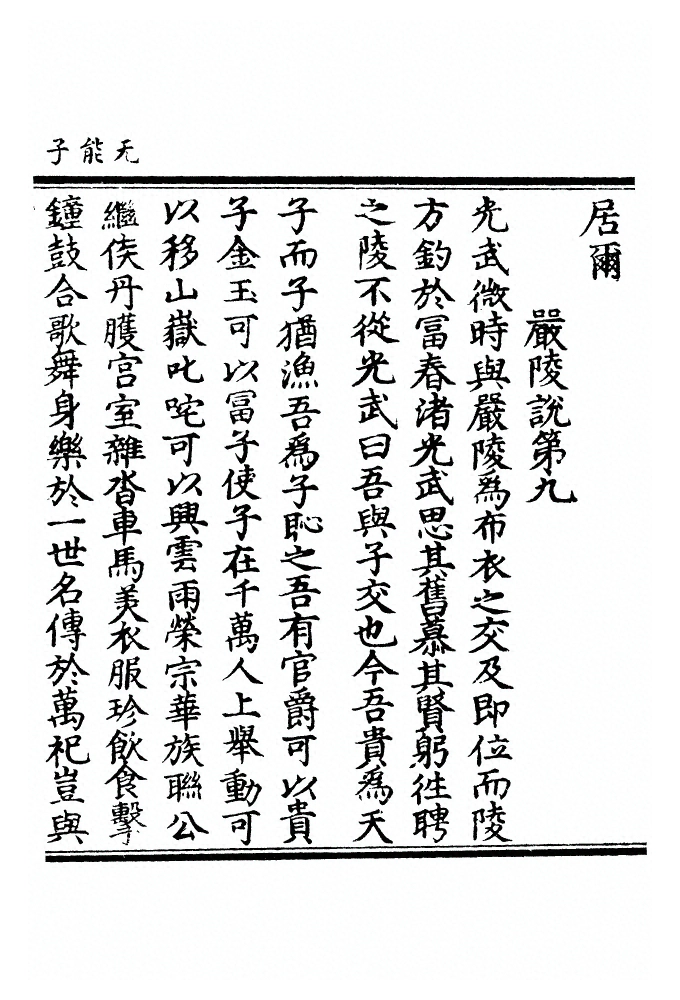 无能子
居爾
嚴陵說第九
光武微時與嚴陵爲布衣之交及即位而陵
方釣於富春渚光武思其舊慕其賢躬徃聘
之陵不從光武曰吾與子交也今吾貴爲天
子而子猶漁吾爲子恥之吾有官爵可以貴
子金玉可以冨子使子在千萬人上舉動可
以移山嶽叱咤可以興雲雨榮宗華族聯公
繼侯丹臒宫室雜沓車馬美衣服珍飲食擊
鐘鼓合歌舞身樂於一世名傳於萬祀豈與